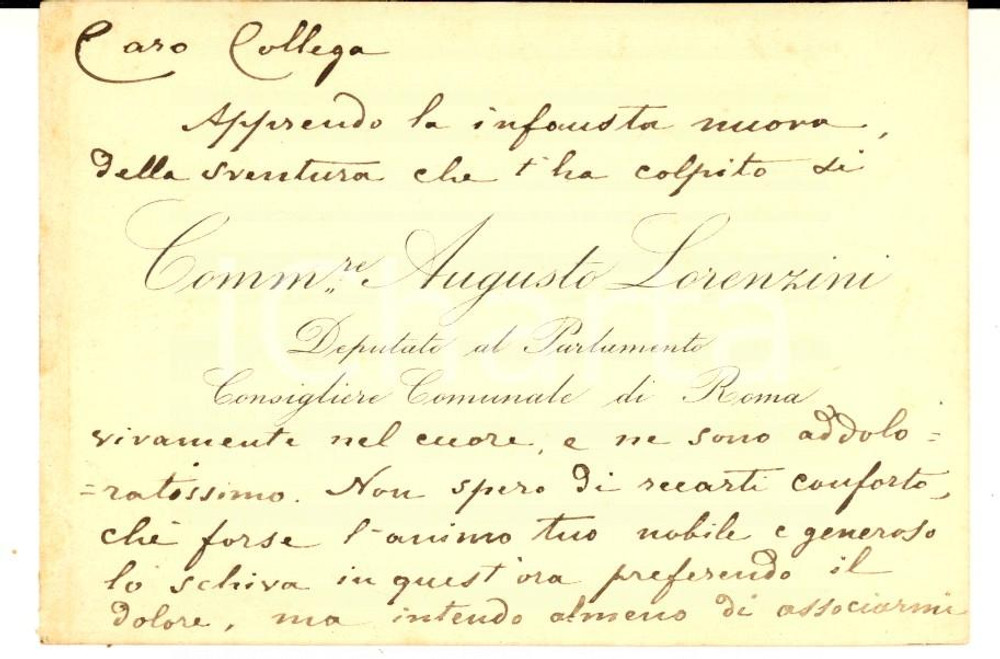 Caro Collega
Apprendo la infausta nuova,
della sventura che t'ha colpito sì
Comm.re Augusto Lorenzini
Deputato al Parlamento
Consigliere Comunale di Roma
vivamente nel cuore, e ne sono addolo=
=ratissimo. Non spero di recarti conforto,
chè forse l'animo tuo nobile e generoso
lo schiva in quest'ora preferendo il
dolore, ma intendo almeno di associarmi
iCharta